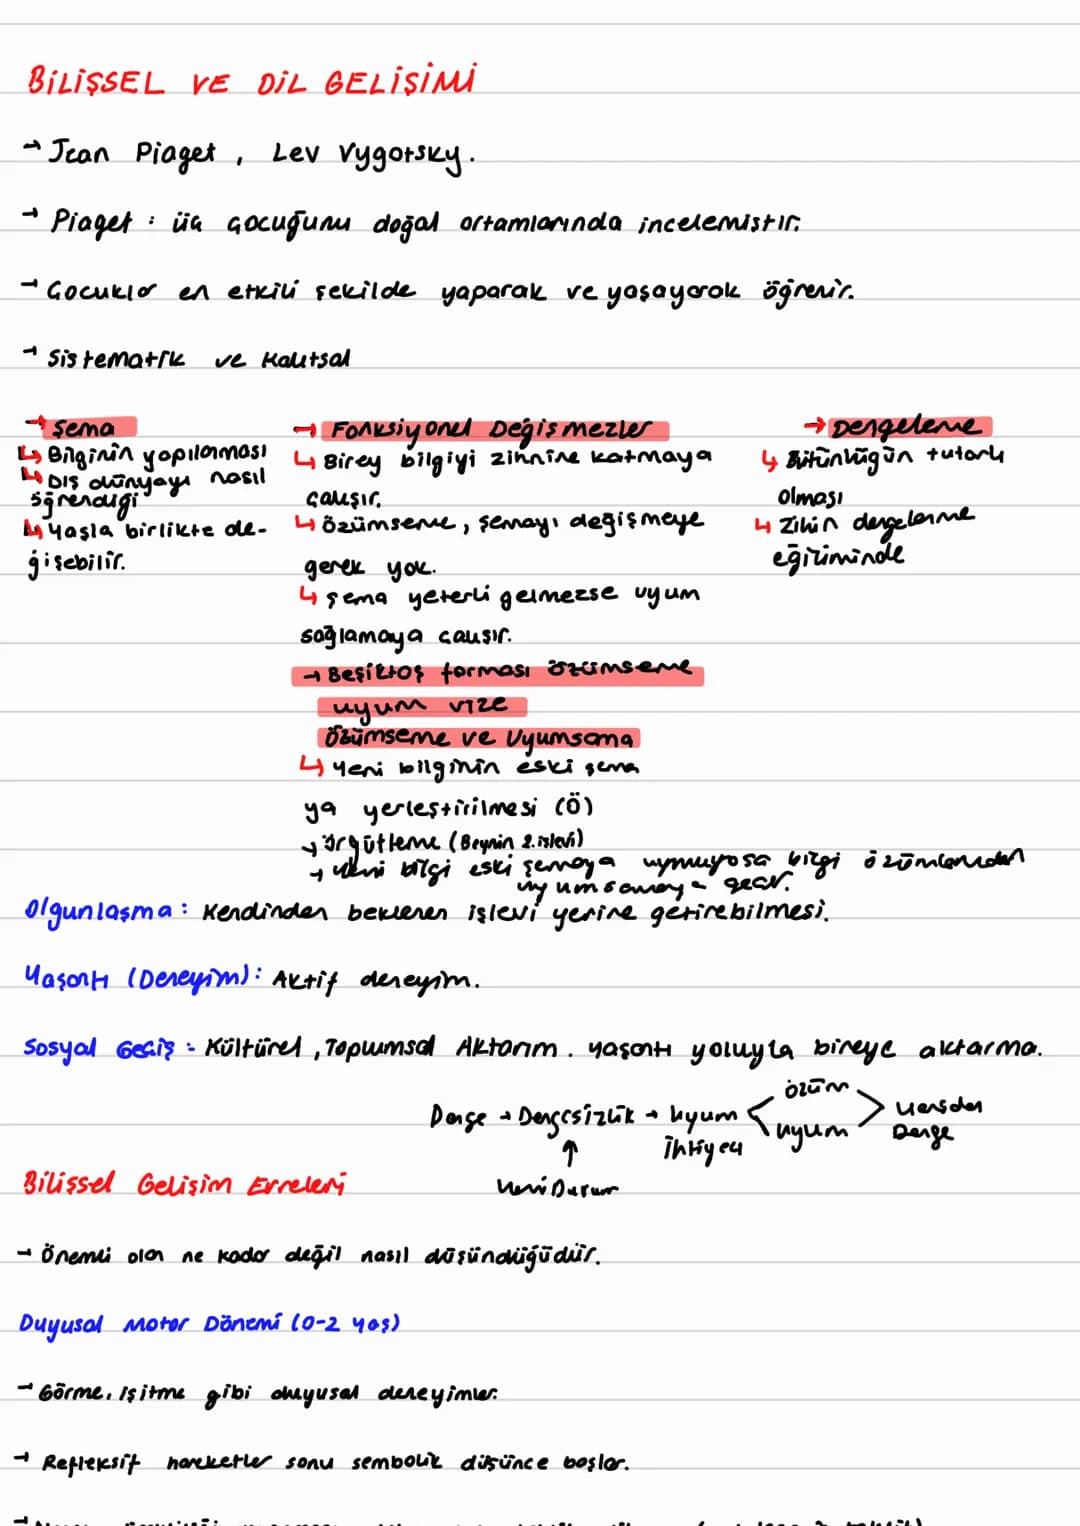 BİLİŞSEL VE DİL GELİŞİMİ
→ Jean Piaget, Lev Vygotsky.
→ Piaget : üç çocuğunu doğal ortamlarında incelemiştir.
→ Çocuklar en etkili şekilde yaparak ve yaşayarak öğrenir.
→ Sistematik ve Kalıtsal
→ Şema
↳ Bilginin yapılanması
↳ Dış dünyayı nasıl
öğrendiği
↳ Yaşla birlikte de-
ğişebilir.
→ Fonksiyonel Değişmezler
↳ Birey bilgiyi zihnine katmaya
çalışır.
↳ özümseme, şemayı değişmeye
gerek yok.
↳ şema yeterli gelmezse uyum
sağlamaya çalışır.
→ Beşiktaş forması özümseme
uyum vize
Özümseme ve Uyumsama
↳ Yeni bilginin eski şema
ya yerleştirilmesi (Ö)
→ örgütleme (Beynin 2. işlevi)
→ Yeni bilgi eski şemaya uymuyosa bilgi özümlemeden
uyumsamaya geçer.
→ Dengeleme
↳ Bütünlüğün tutarlı
olması
↳ Zihin dengelenme
eğiliminde
Olgunlaşma : Kendinden beklenen işlevi yerine getirebilmesi.
Yaşantı (Deneyim) : Aktif deneyim.
Sosyal Geçiş : Kültürel, Toplumsal Aktarım. yaşantı yoluyla bireye aktarma.
Denge → Dengesizlik → Uyum < özüm > Yeniden
İhtiyacı uyum Denge
↑
Yeni Durum
Bilişsel Gelişim Evreleri
→ Önemli olan ne kadar değil nasıl düşündüğüdür.
Duyusal Motor Dönemi (0-2 yaş)
→ Görme, işitme gibi duyusal deneyimler.
→ Refleksif hareketler sonu sembolik düşünce başlar.